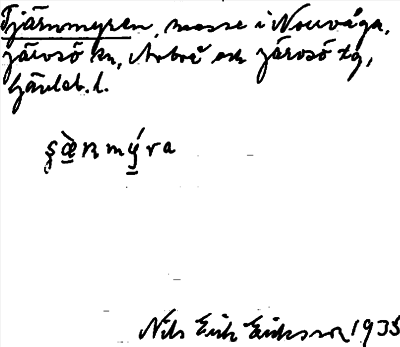 Tjärnmyren, mosse i Norrvåga,
Järvsö sn, Arbrå och Järvsö tg,
Gävleb. l.
ʂæ̀ɳmy̆́ra
Nils Erik Eriksson 1935